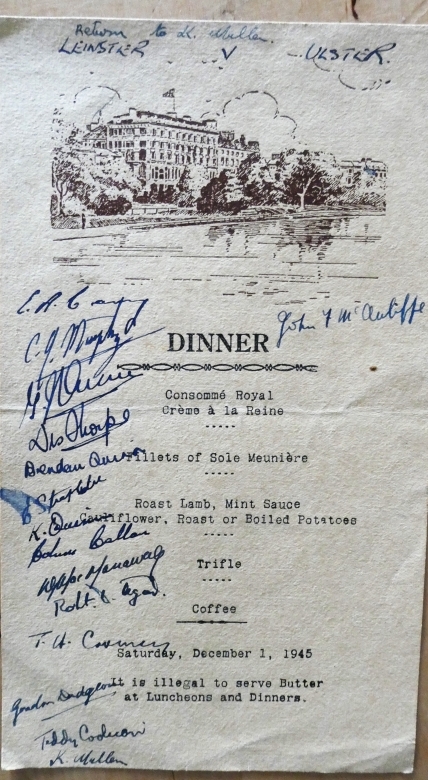 Return to K. Mullen.
LEINSTER V ULSTER.
John F McAuliffe
C. J. Murphy
DINNER
Quinn
Consommé Royal
Crème à la Reine
Des Thorpe
Brendan Quinn
Fillets of Sole Meunière
Roast Lamb, Mint Sauce
K. Quinn
Cauliflower, Roast or Boiled Potatoes
Trifle
Robt.
Coffee
T. H.
Saturday, December 1, 1945
It is illegal to serve Butter
at Luncheons and Dinners.
Gordon Dudgeon
Teddy
K. Mullen